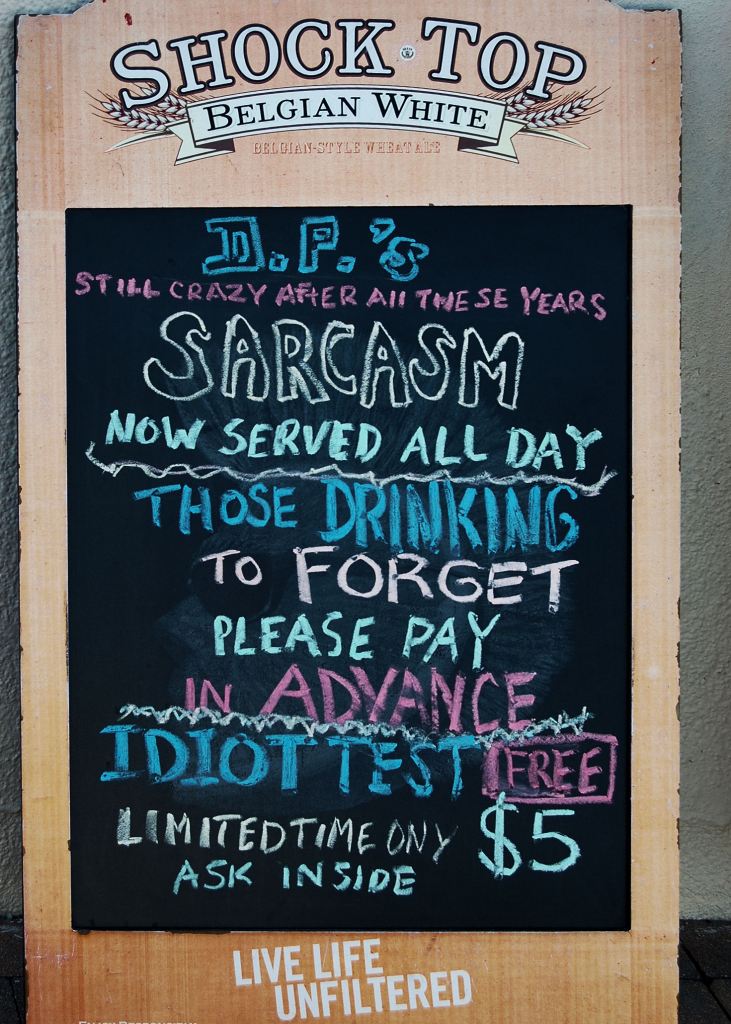 SHOCK TOP
BELGIAN WHITE
BELGIAN-STYLE WHEAT ALE
D.P.'S
STILL CRAZY AFTER All THESE YEARS
SARCASM
NOW SERVED ALL DAY
THOSE DRINKING
TO FORGET
PLEASE PAY
IN ADVANCE
IDIOT TEST FREE
LIMITED TIME ONY $5
ASK INSIDE
LIVE LIFE
UNFILTERED
ENJOY RESPONSIBLY